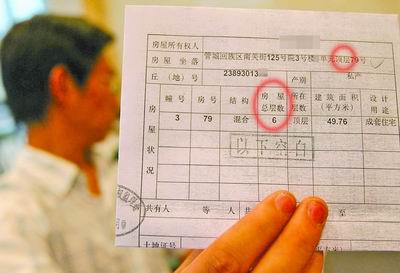 房屋所有权人
房屋坐落 管城回族区南关街125号院3号楼 单元顶层79号
丘(地)号 23893013 产别 私产
房屋状况
幢号 房号 结构 房屋总层数 所在层数 建筑面积(平方米) 设计用途
3 79 混合 6 顶层 49.76 成套住宅
以下空白
共有人 等 人 至
土地证号 (平方米)